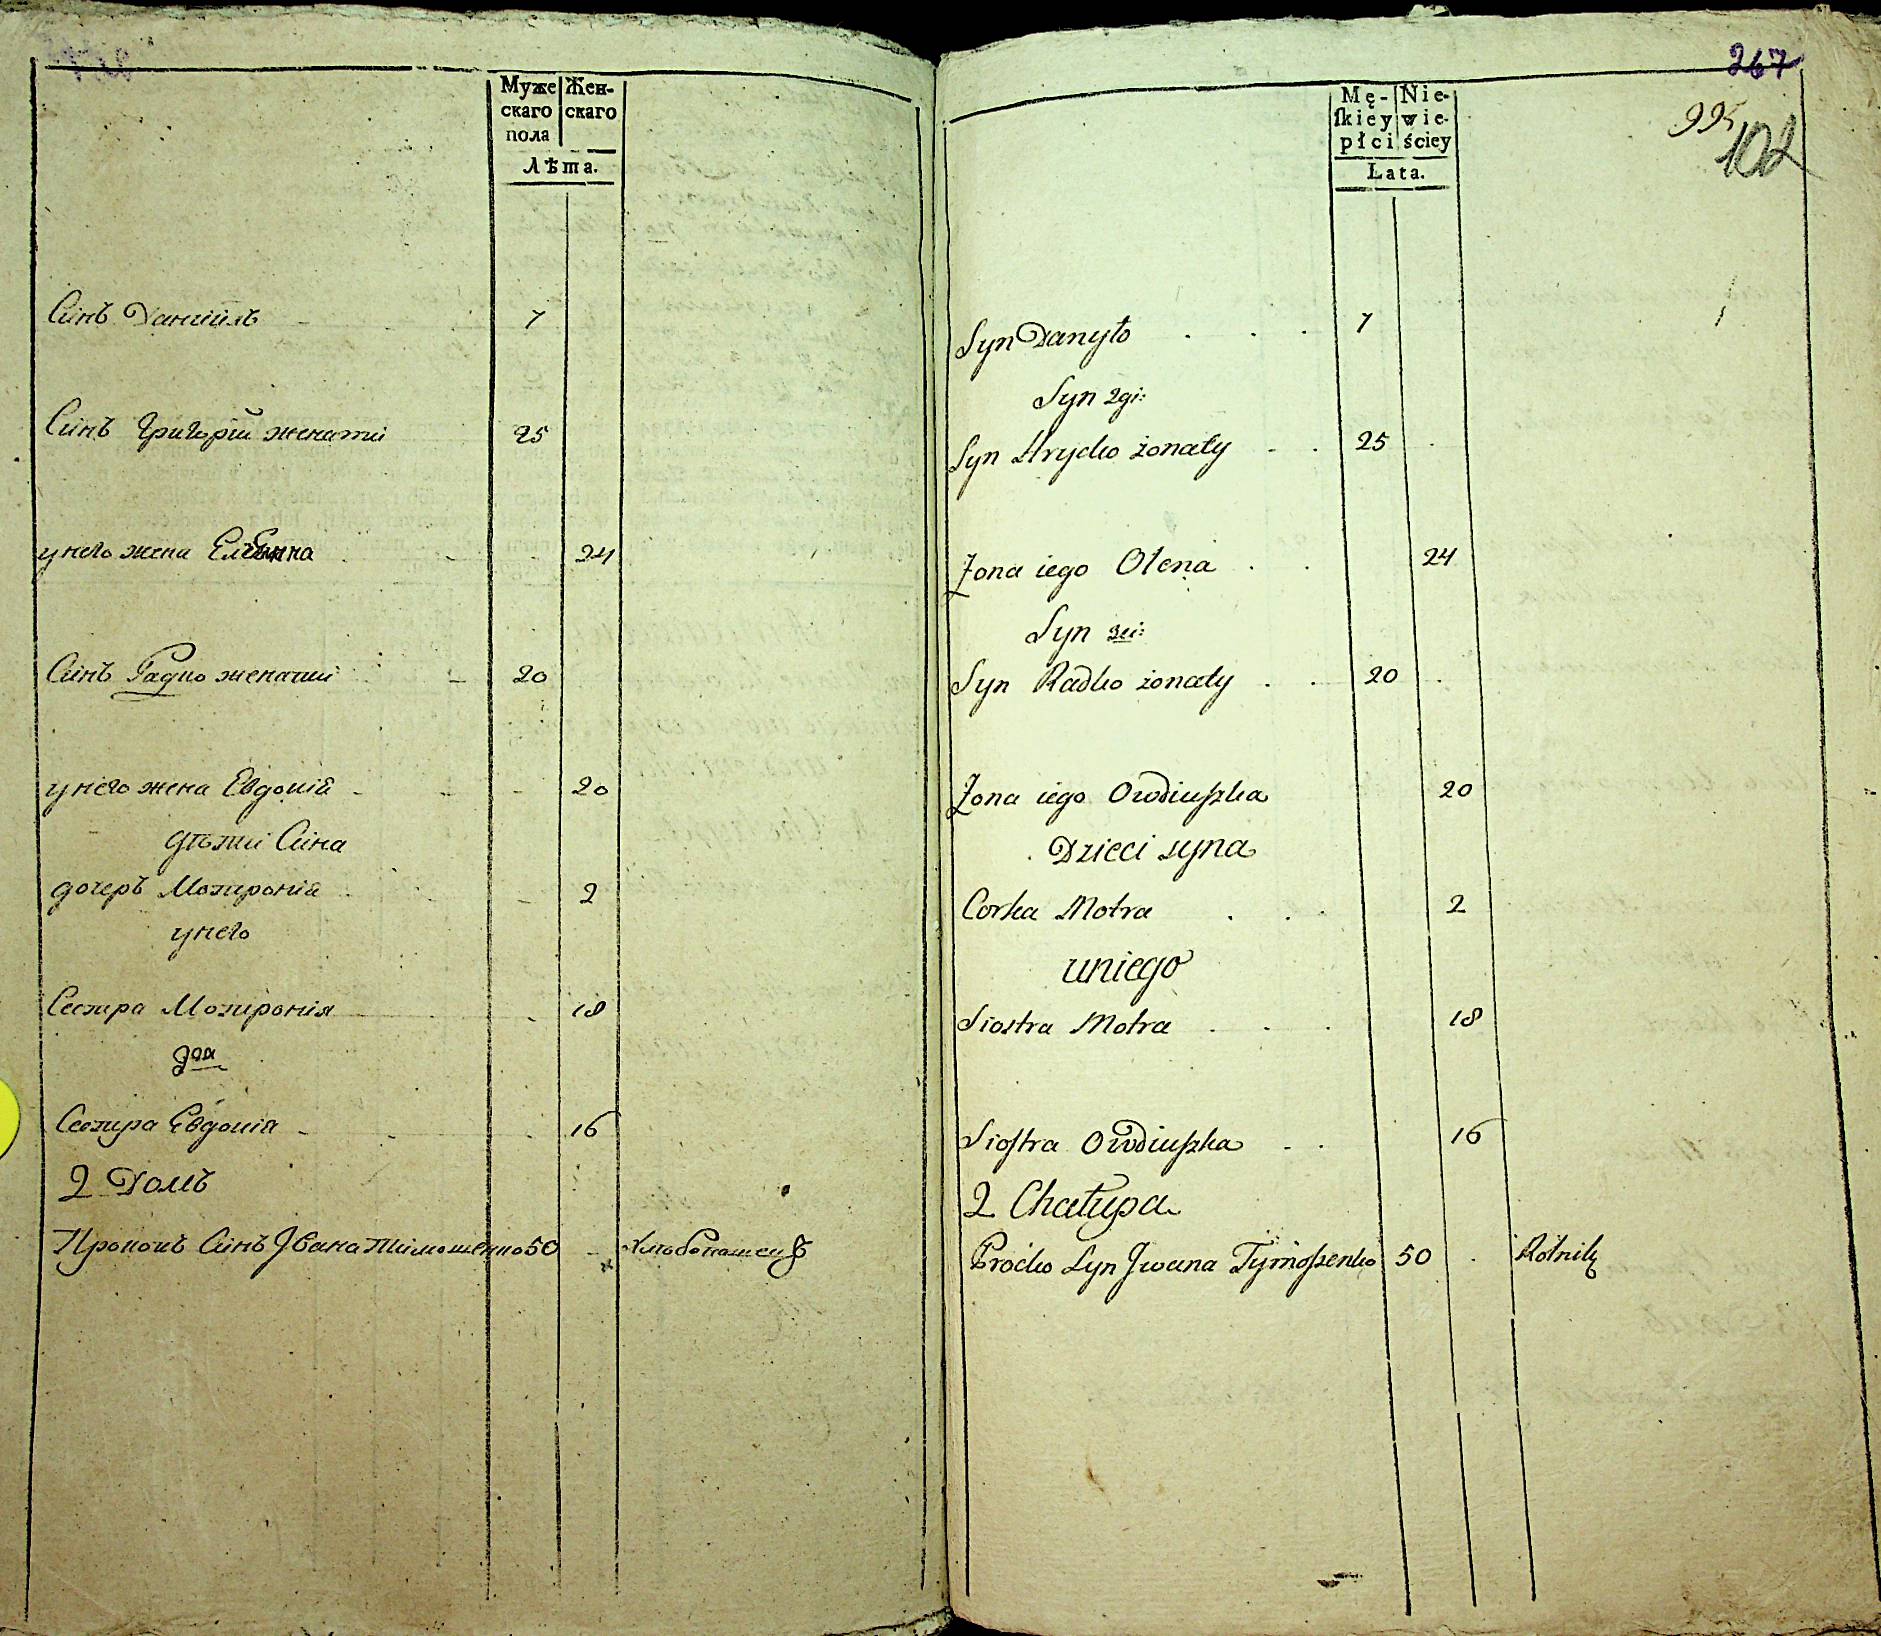 Муже
скаго
пола
Жен-
скаго
Лѣта.
Синъ Даниілъ 7
Синъ Григорій женатій 25
у него жена Елена 24
Синъ Радко женатій 20
у него жена Евдокія 20
дѣти Сина
дочеръ Мотронія 2
у него
Сестра Мотронія 18
2оя
Сестра Евдокія 16
2 Домъ
Прокопъ Синъ Івана Тимошенко 50 Хлѣбопашецъ
267
995
102
Mę-
skiey
płci
Nie-
wie-
ściey
Lata.
Syn Danyło 7
Syn 2gi:
Syn Hrycko żonaty 25
Żona iego Olena 24
Syn 3ci:
Syn Radko żonaty 20
Żona iego Owdiuszka 20
Dzieci syna
Corka Motra 2
uniego
Siostra Motra 18
Siostra Owdiuszka 16
2 Chałupa
Proćko Syn Jwana Tymoszenko 50 Rolnik